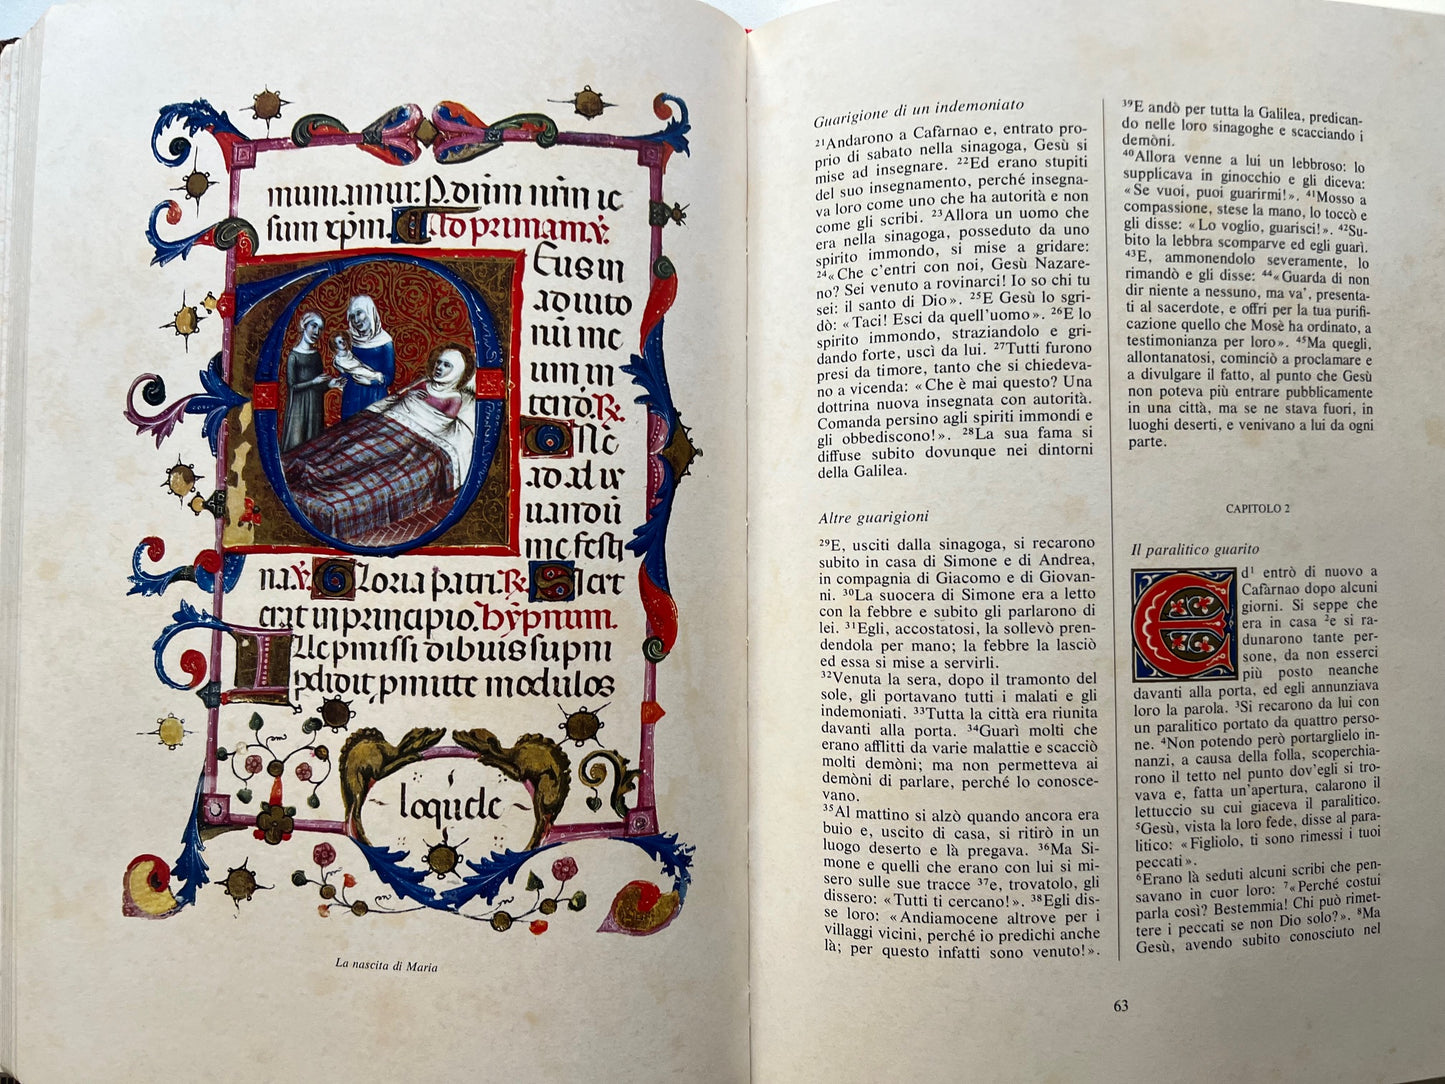 muniamur. P. dum nūm ie
sum xpm. Ad primam. ℣.
Deus in
adiuto
riū me
um in
tende. ℟.
Dñe
ad ad
me festi
na. ℣. Gloria patri. ℟. Sicut
erat in principio. hypnum.
loquele
La nascita di Maria
Guarigione di un indemoniato
²¹Andarono a Cafarnao e, entrato pro-
prio di sabato nella sinagoga, Gesù si
mise ad insegnare. ²²Ed erano stupiti
del suo insegnamento, perché insegna-
va loro come uno che ha autorità e non
come gli scribi. ²³Allora un uomo che
era nella sinagoga, posseduto da uno
spirito immondo, si mise a gridare:
²⁴«Che c'entri con noi, Gesù Nazare-
no? Sei venuto a rovinarci! Io so chi tu
sei: il santo di Dio». ²⁵E Gesù lo sgri-
dò: «Taci! Esci da quell'uomo». ²⁶E lo
spirito immondo, straziandolo e gri-
dando forte, uscì da lui. ²⁷Tutti furono
presi da timore, tanto che si chiedeva-
no a vicenda: «Che è mai questo? Una
dottrina nuova insegnata con autorità.
Comanda persino agli spiriti immondi e
gli obbediscono!». ²⁸La sua fama si
diffuse subito dovunque nei dintorni
della Galilea.
Altre guarigioni
²⁹E, usciti dalla sinagoga, si recarono
subito in casa di Simone e di Andrea,
in compagnia di Giacomo e di Giovan-
ni. ³⁰La suocera di Simone era a letto
con la febbre e subito gli parlarono di
lei. ³¹Egli, accostatosi, la sollevò pren-
dendola per mano; la febbre la lasciò
ed essa si mise a servirli.
³²Venuta la sera, dopo il tramonto del
sole, gli portavano tutti i malati e gli
indemoniati. ³³Tutta la città era riunita
davanti alla porta. ³⁴Guarì molti che
erano afflitti da varie malattie e scacciò
molti demòni; ma non permetteva ai
demòni di parlare, perché lo conosce-
vano.
³⁵Al mattino si alzò quando ancora era
buio e, uscito di casa, si ritirò in un
luogo deserto e là pregava. ³⁶Ma Si-
mone e quelli che erano con lui si mi-
sero sulle sue tracce ³⁷e, trovatolo, gli
dissero: «Tutti ti cercano!». ³⁸Egli dis-
se loro: «Andiamocene altrove per i
villaggi vicini, perché io predichi anche
là; per questo infatti sono venuto!».
³⁹E andò per tutta la Galilea, predican-
do nelle loro sinagoghe e scacciando i
demòni.
⁴⁰Allora venne a lui un lebbroso: lo
supplicava in ginocchio e gli diceva:
«Se vuoi, puoi guarirmi!». ⁴¹Mosso a
compassione, stese la mano, lo toccò e
gli disse: «Lo voglio, guarisci!». ⁴²Su-
bito la lebbra scomparve ed egli guarì.
⁴³E, ammonendolo severamente, lo
rimandò e gli disse: ⁴⁴«Guarda di non
dir niente a nessuno, ma va', presenta-
ti al sacerdote, e offri per la tua purifi-
cazione quello che Mosè ha ordinato, a
testimonianza per loro». ⁴⁵Ma quegli,
allontanatosi, cominciò a proclamare e
a divulgare il fatto, al punto che Gesù
non poteva più entrare pubblicamente
in una città, ma se ne stava fuori, in
luoghi deserti, e venivano a lui da ogni
parte.
CAPITOLO 2
Il paralitico guarito
Ed¹ entrò di nuovo a
Cafarnao dopo alcuni
giorni. Si seppe che
era in casa ²e si ra-
dunarono tante per-
sone, da non esserci
più posto neanche
davanti alla porta, ed egli annunziava
loro la parola. ³Si recarono da lui con
un paralitico portato da quattro perso-
ne. ⁴Non potendo però portarglielo in-
nanzi, a causa della folla, scoperchia-
rono il tetto nel punto dov'egli si tro-
vava e, fatta un'apertura, calarono il
lettuccio su cui giaceva il paralitico.
⁵Gesù, vista la loro fede, disse al para-
litico: «Figliolo, ti sono rimessi i tuoi
peccati».
⁶Erano là seduti alcuni scribi che pen-
savano in cuor loro: ⁷«Perché costui
parla così? Bestemmia! Chi può rimet-
tere i peccati se non Dio solo?». ⁸Ma
Gesù, avendo subito conosciuto nel
63